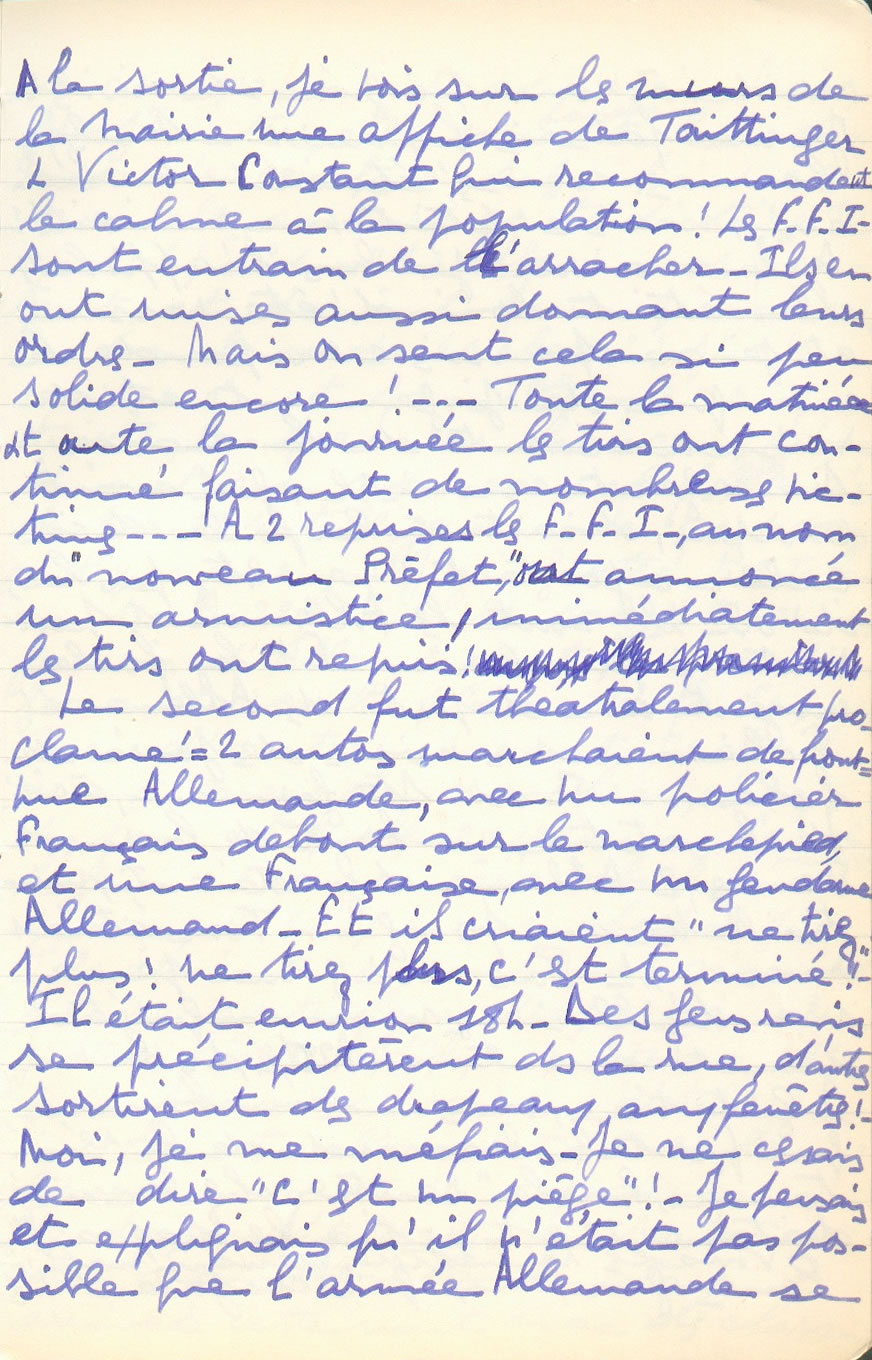 A la sortie, je vois sur les murs de
la Mairie une affiche de Taittinger
& Victor Constant qui recommandent
le calme à la population! Les F.F.I-
sont en train de l'arracher - Ils en
ont mises aussi donnant leurs
ordres - Mais on sent cela si peu
solide encore! --- Toute la matinée
et toute la journée les tirs ont con-
tinué faisant de nombreuses vic-
times --- A 2 reprises les F.-F.-I-, au nom
du "nouveau Préfet", ont annoncé
un armistice, immédiatement
les tirs ont repris!
Le second fut théatralement pro-
clamé = 2 autos marchaient de front =
une Allemande, avec un policier
Français debout sur le marchepied,
et une Française, avec un gendarme
Allemand - Et ils criaient "ne tirez
plus! ne tirez plus, c'est terminé"!-
Il était environ 18h - Des gens ravis
se précipitèrent ds la rue, d'autres
sortirent des drapeaux aux fenêtres!-
Moi, je me méfiais - Je ne cessais
de dire "C'est un piège"! - Je pensais
et expliquais qu'il n'était pas pos-
sible que l'armée Allemande se